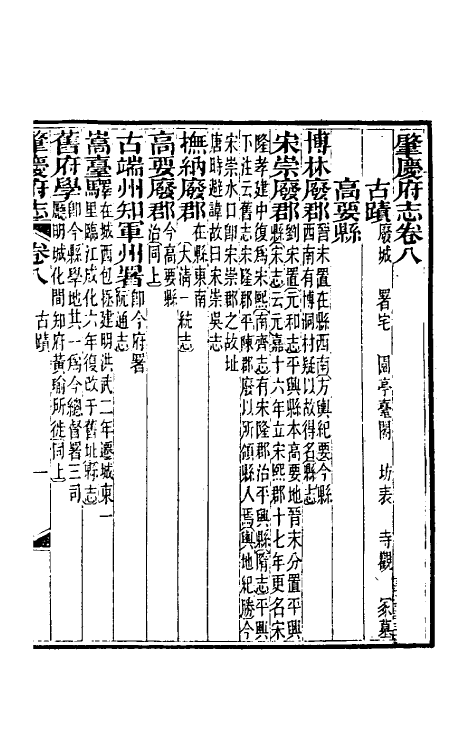 肇慶府志卷八
古蹟 廢城 署宅 園亭臺閣 坊表 寺觀 冢墓
高要縣
博林廢郡 晉末置在縣西南方輿紀要今縣
西南有博洞村疑以故得名縣志
宋崇廢郡 劉宋置元和志平興縣本高要地晉末分置平興
縣宋志云元嘉十六年立宋熙郡十七年更名宋
隆孝建中復爲宋熙南齊志有宋隆郡治平興縣隋志平興
下注云舊志宋隆郡平陳郡廢以所領縣人焉輿地紀勝今
宋崇水口卽宋崇郡之故址
唐時避諱故曰宋崇吳志
撫納廢郡 在縣東南
大清一統志
高要廢郡 今高要縣
治同上
古端州知軍州署 卽今府署
阮通志
嵩臺驛 驛在城西包拯建明洪武二年遷城東一
里臨江成化六年復改于舊址縣志
舊府學 卽今縣學地其一爲今總督署三司
廳明城化間知府黃瑜所徙同上
肇慶府志 卷八 古蹟 一